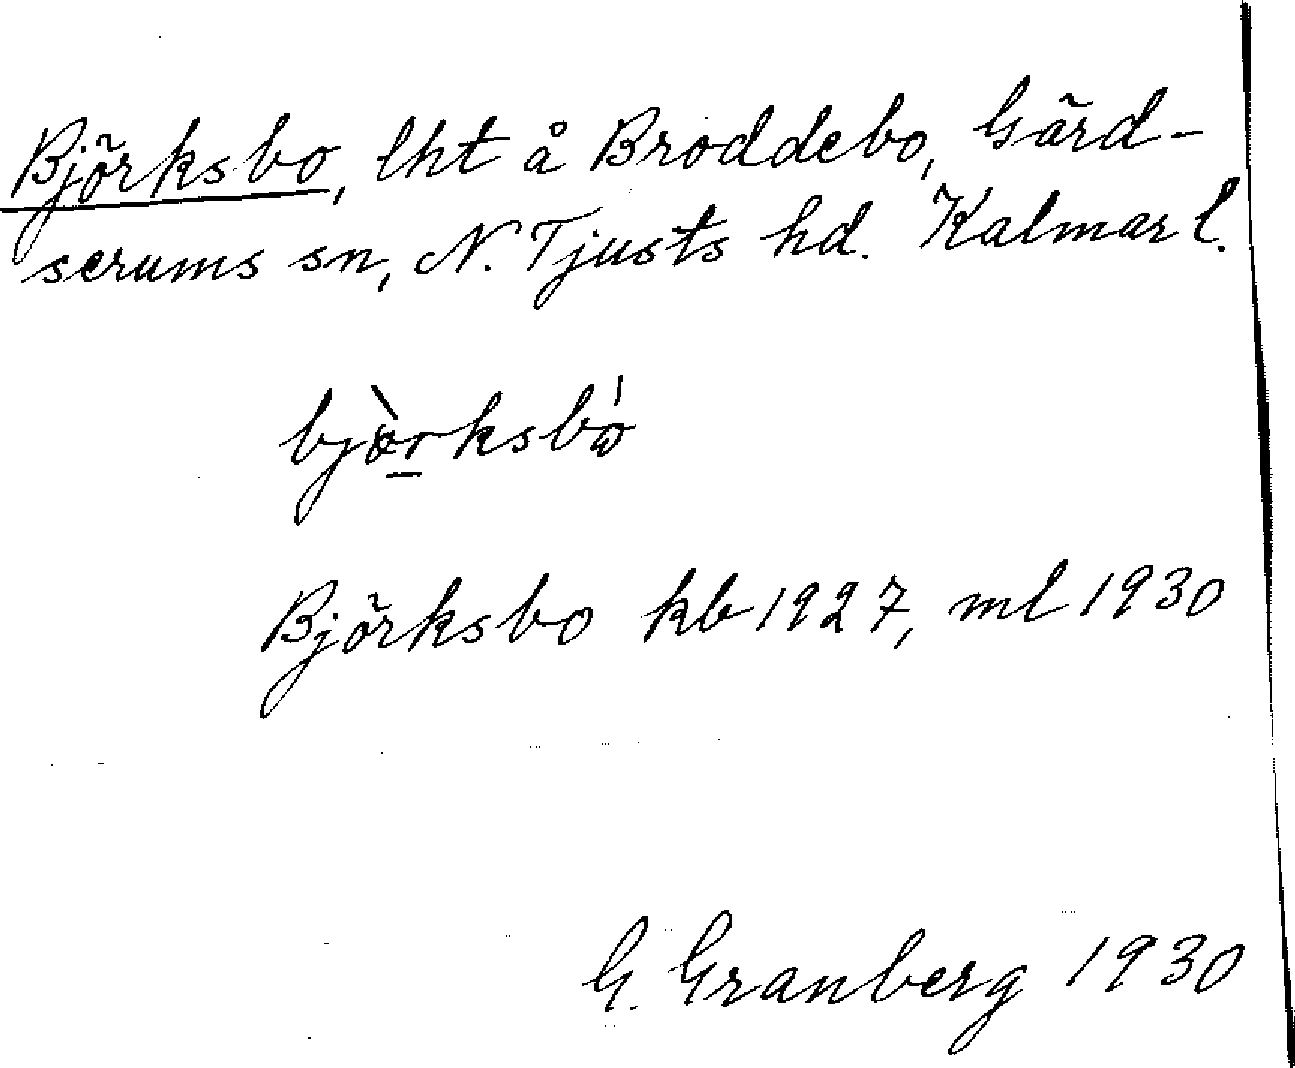 Björksbo, lht å Broddebo, Gärd-
serums sn, N. Tjusts hd. Kalmar l.
Björksbo kb 1927, ml 1930
G. Granberg 1930